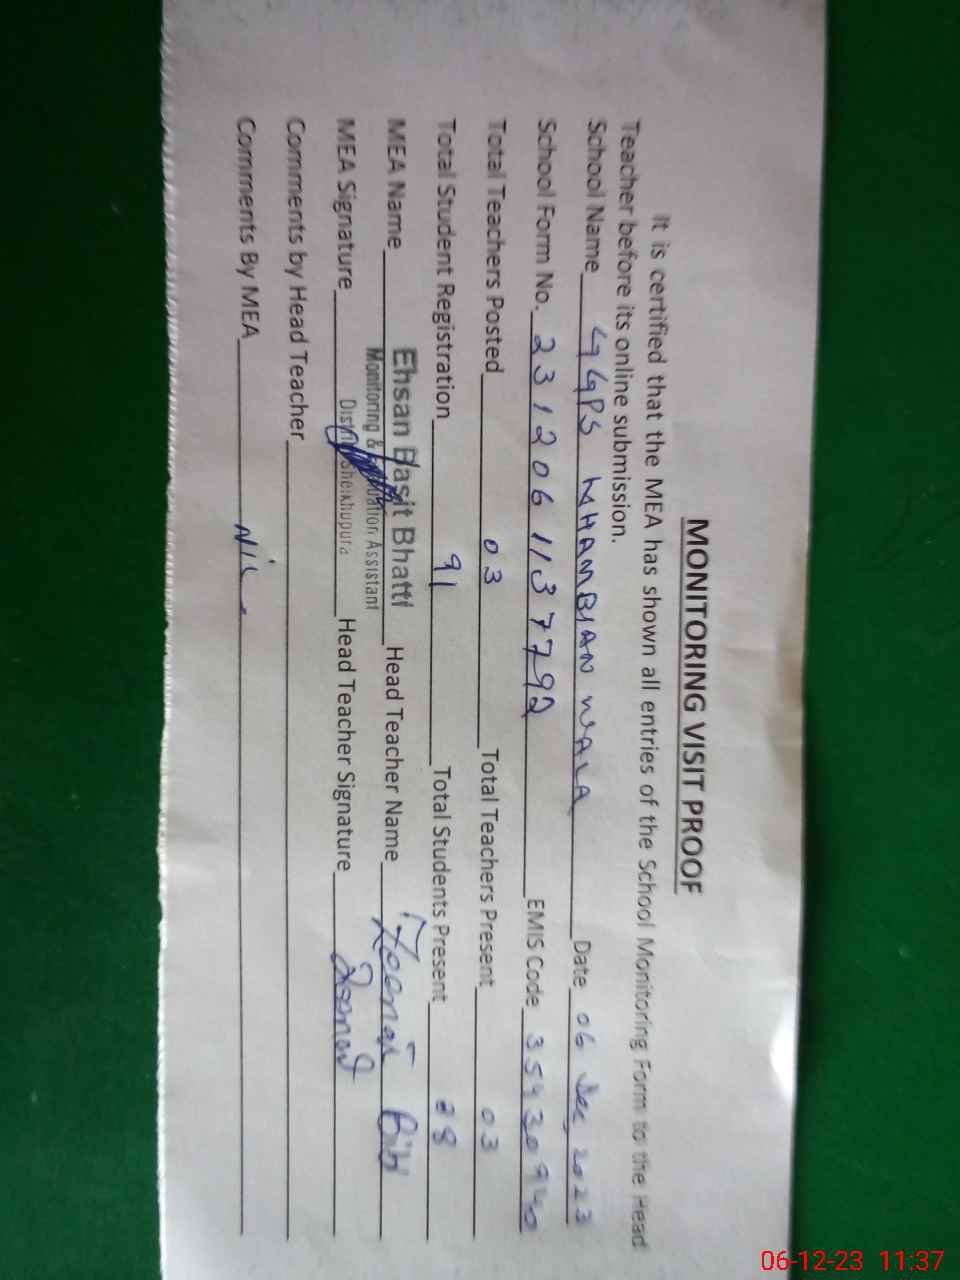 MONITORING VISIT PROOF
It is certified that the MEA has shown all entries of the School Monitoring Form to the Head
Teacher before its online submission.
School Name GGPS KHAMBIAN WALA Date 06 Dec, 2023
School Form No. 2312061137792 EMIS Code 35430940
Total Teachers Posted 03 Total Teachers Present 03
Total Student Registration 91 Total Students Present 88
MEA Name Ehsan Basit Bhatti Head Teacher Name Bibi
Monitoring & Evaluation Assistant
MEA Signature District Sheikhupura Head Teacher Signature
Comments by Head Teacher
Comments By MEA Nil
06-12-23 11:37